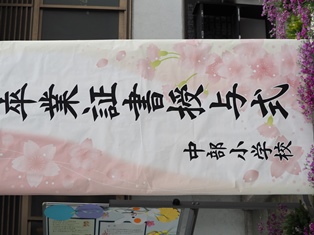 卒業証書授与式
中部小学校